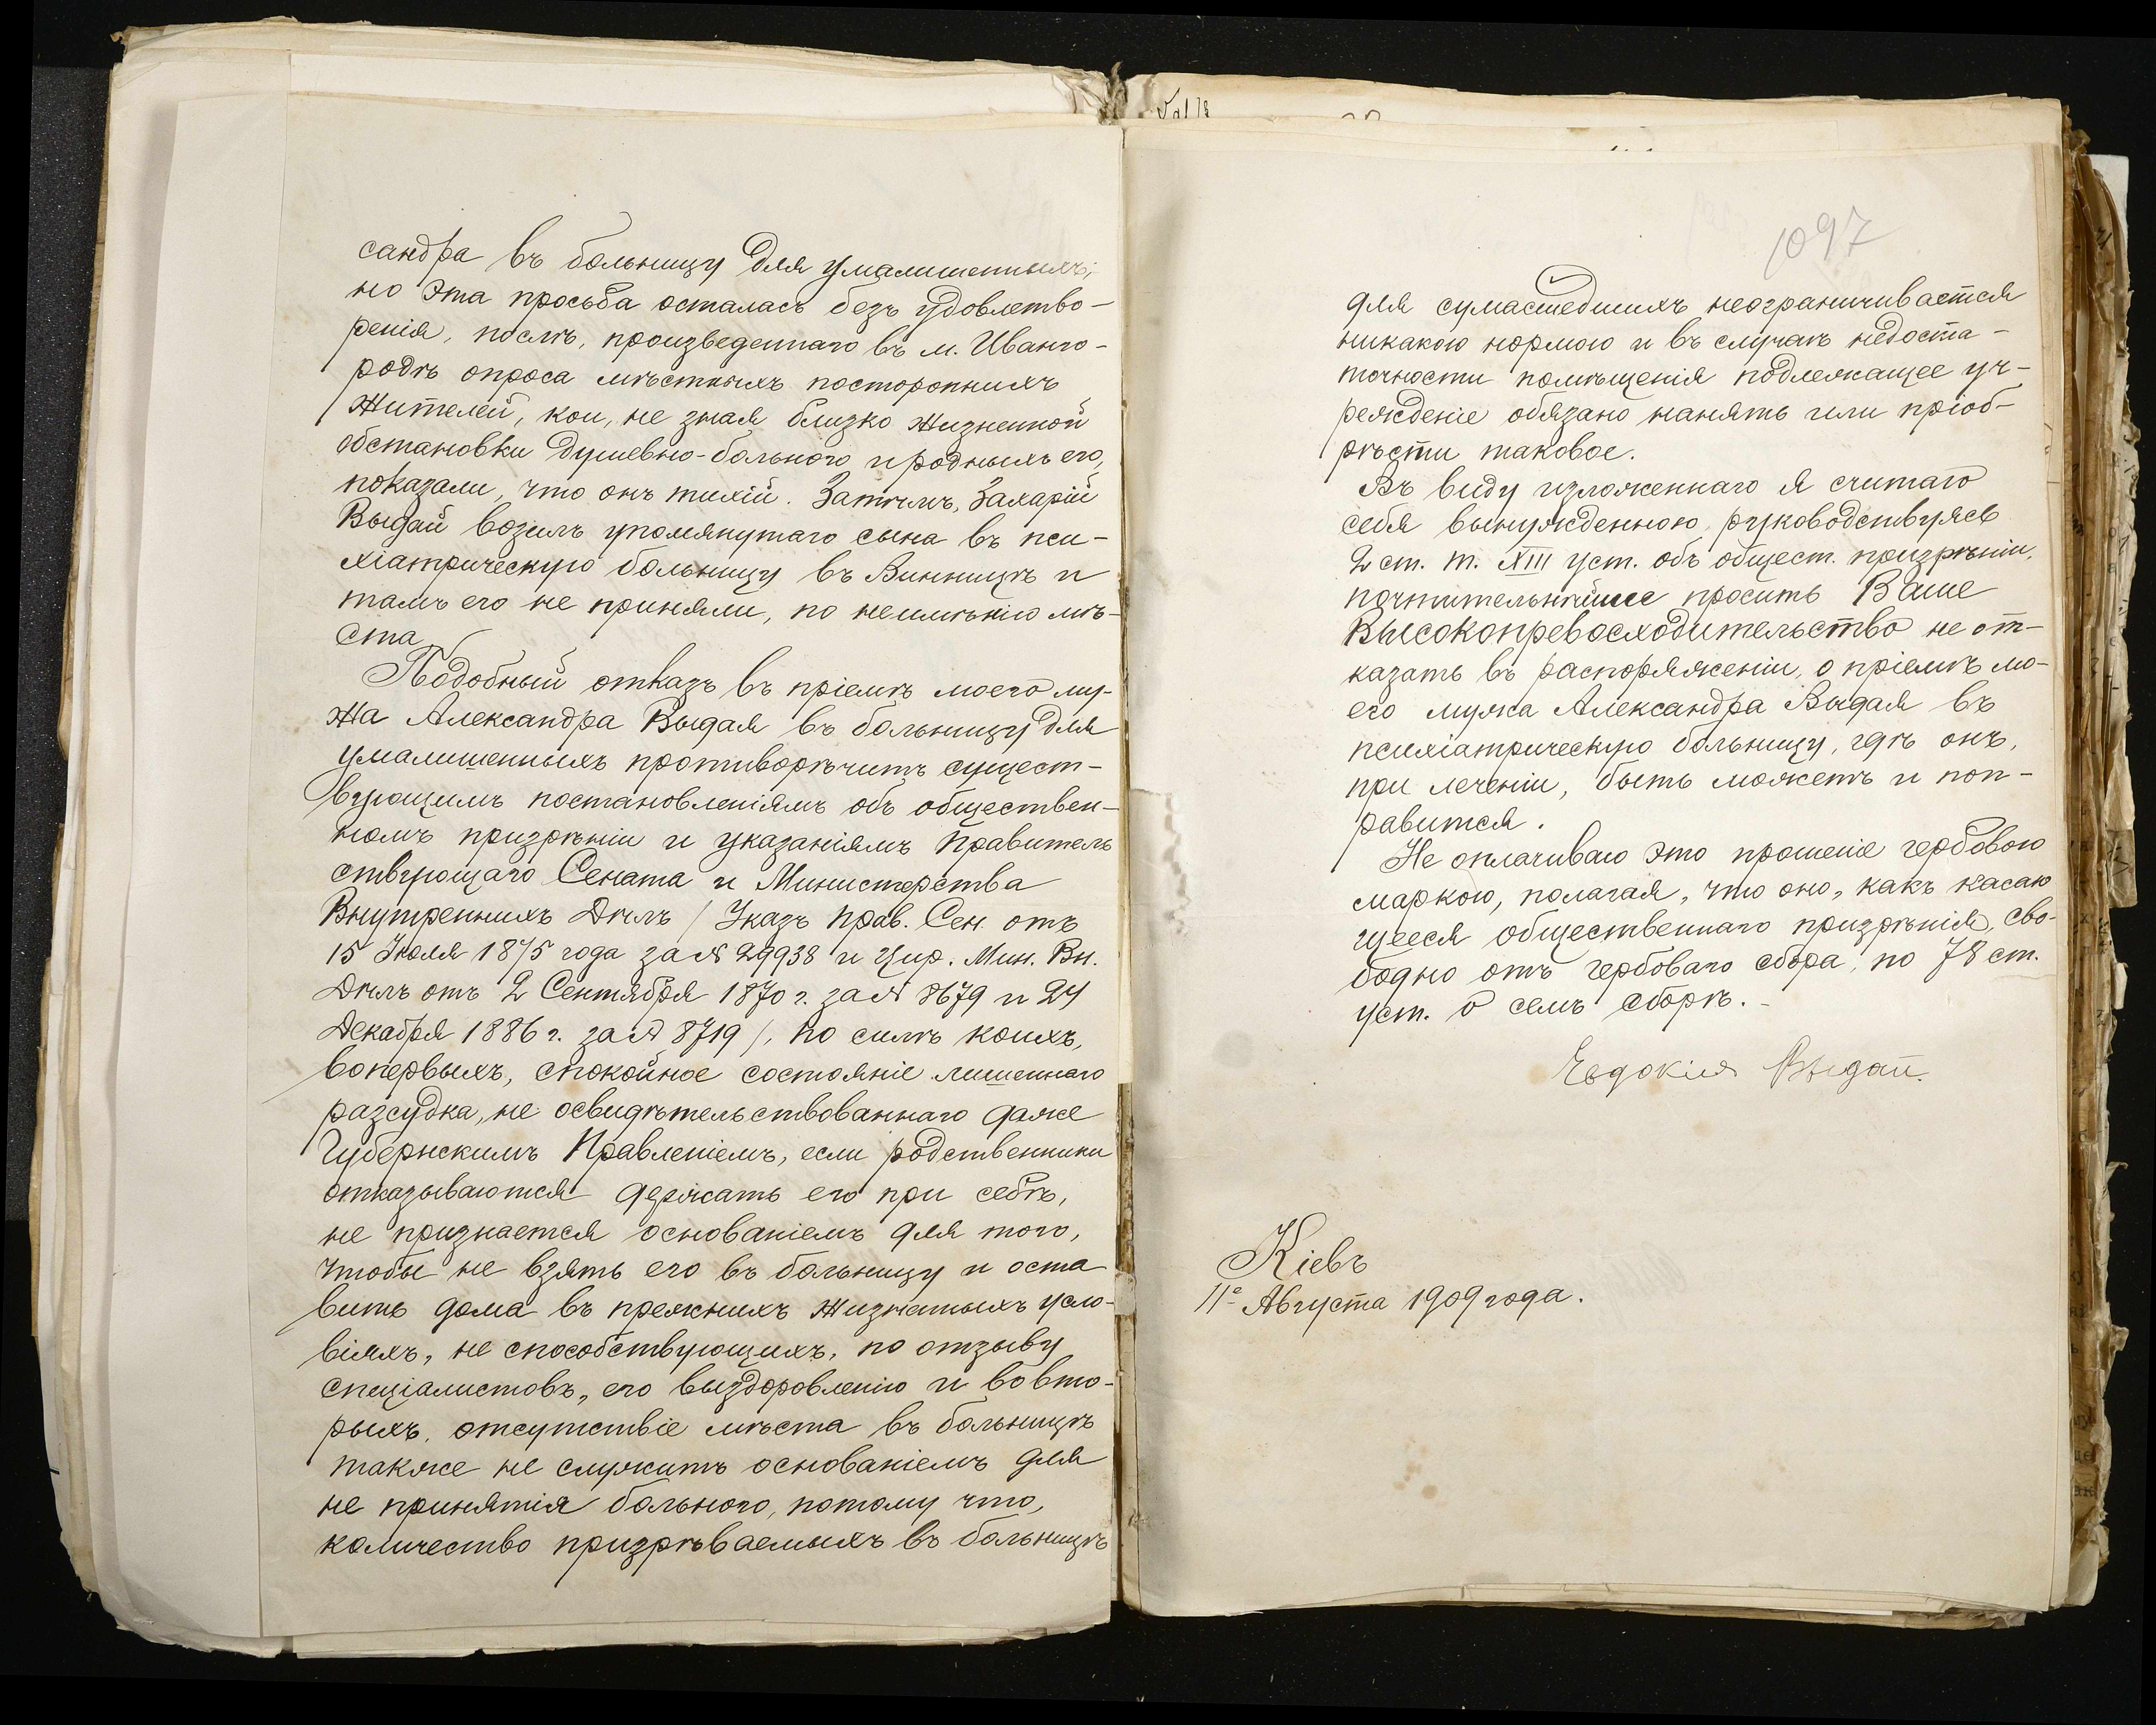 сандра въ больницу для умалишенныхъ,
но эта просьба осталась безъ удовлетво-
ренія, послѣ, произведеннаго въ м. Иванго-
родѣ опроса мѣстныхъ постороннихъ
жителей, кои, не зная близко жизненной
обстановки душевно-больного и родныхъ его,
показали, что онъ тихій. Затѣмъ, Захарій
Выдай возилъ упомянутаго сына въ пси-
хіатрическую больницу въ Винницѣ и
тамъ его не приняли, по неимѣнію мѣ-
ста
Подобный отказъ въ пріемѣ моего му-
жа Александра Выдая въ больницу для
умалишенныхъ противорѣчитъ сущест-
вующимъ постановленіямъ объ обществен-
номъ призрѣніи и указаніямъ Правитель
ствующаго Сената и Министерства
Внутреннихъ Дѣлъ / Указъ Прав. Сен. отъ
15 Іюля 1875 года за № 29938 и Цир. Мин. Вн.
Дѣлъ отъ 2 Сентября 1870 г. за № 8679 и 24
Декабря 1886 г. за № 8719 /, по силѣ коихъ,
вопервыхъ, спокойное состояніе лишеннаго
разсудка, не освидѣтельствованнаго даже
Губернскимъ Правленіемъ, если родственники
отказываются держать его при себѣ,
не признается основаніемъ для того,
чтобы не взять его въ больницу и оста
вить дома въ прежнихъ жизненныхъ усло-
віяхъ, не способствующихъ, по отзыву
спеціалистовъ, его выздоровленію и вовто-
рыхъ, отсутствіе мѣста въ больницѣ
также не служитъ основаніемъ для
не принятія больного, потому что,
количество призрѣваемыхъ въ больницѣ
1097
для сумасшедшихъ неограничивается
никакою нормою и въ случаѣ недоста-
точности помѣщенія подлежащее уч-
режденіе обязано нанять или пріоб-
рѣсти таковое.
Въ виду изложеннаго я считаю
себя вынужденною, руководствуясь
2 ст. т. XIII уст. объ общест. призрѣніи,
почтительнѣйше просить Ваше
Высокопревосходительство не от-
казать въ распоряженіи, о пріемѣ мо-
его мужа Александра Выдая въ
психіатрическую больницу, гдѣ онъ,
при леченіи, быть можетъ и поп-
равится.
Не оплачиваю это прошеніе гербовою
маркою, полагая, что оно, какъ касаю
щееся общественнаго призрѣнія, сво-
бодно отъ гербоваго сбора, по 78 ст.
уст. о семъ сборѣ.-
Евдокія Выдай.
Кіевъ
11го Августа 1909 года.